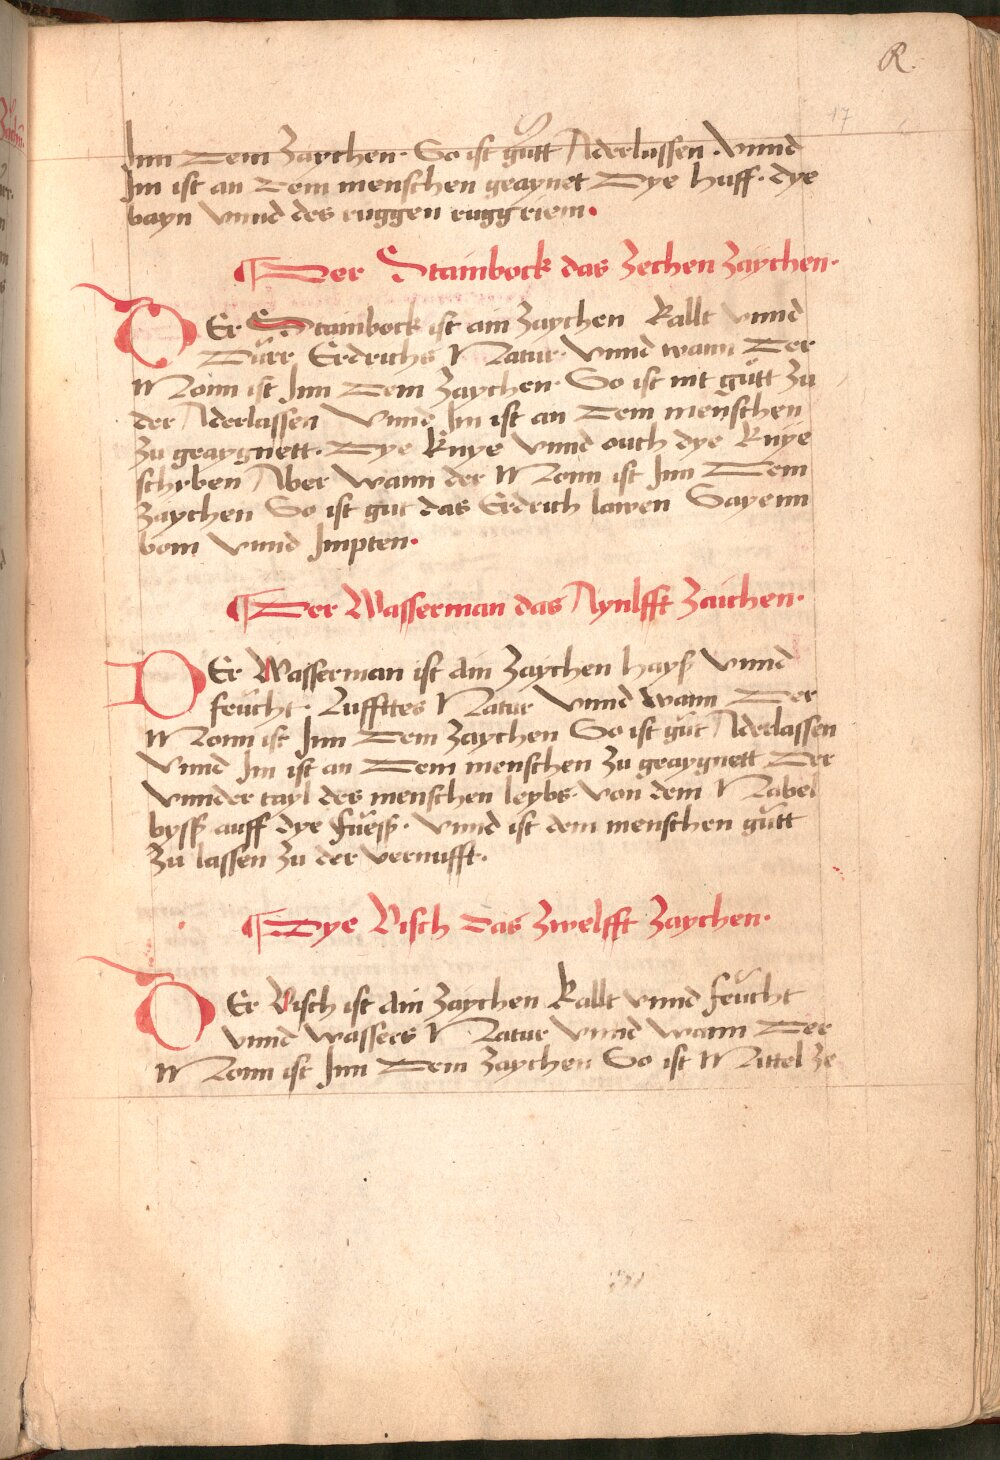 R.
17
Inn Dem Zaychen. So ist gůtt Aderlassen. vnnd
Im ist an Dem menschen geaynet Dye huff. dye
bayn vnnd des ruggen ruggriem.
Der Stainbock das Zechen Zaychen.
DEr Stainbock ist ain Zaychen Kallt vnnd
Dürr Erdrichs Natur. vnnd wann Der
Monn ist Inn Dem Zaychen. So ist nit gůtt Zu
der Aderlassen vnnd Im ist an Dem menschen
Zu geaygnett. Dye Knye vnnd ouch dye Knye
schyben Aber wann der Monn ist Inn Dem
Zaychen So ist gut das Erdrich lawen Sayenn
bom vnnd Impten.
Der Wasserman das Aynlfft Zaichen.
DEr Wasserman ist Ain Zaychen hayß vnnd
feücht. Lufftes Natur vnnd wann Der
Monn ist Inn Dem Zaychen So ist gůt Aderlassen
vnnd Im ist an Dem menschen Zu geaygnett Der
vnnder tayl des menschen leybs. von dem Nabel
byß auff dye füeß. vnnd ist dem menschen gůtt
Zu lassen Zu der vernufft.
Dye Visch Das Zwelfft Zaychen.
DEr Visch ist Ain Zaychen Kallt vnnd feücht
vnnd wassers Natur vnnd wann Der
Monn ist Inn Dem Zaychen So ist Mittel Ze